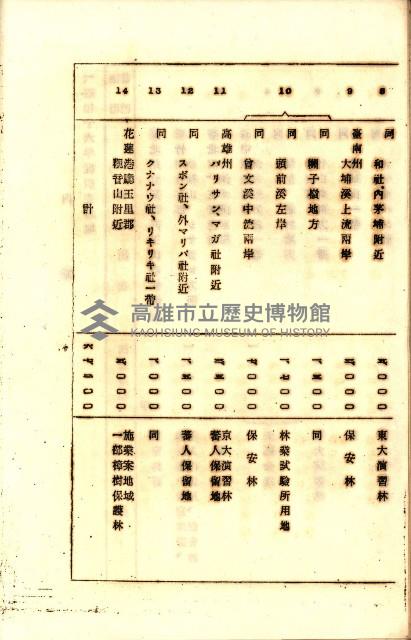 8
同 和社、內茅埔附近
〇〇〇
東大演習林
9
臺南州 大埔溪上流兩岸
〇〇〇
保安林
10
同 糊子嶺地方
〇〇〇
同
同 頭前溪左岸
〇〇
林業試驗所用地
同 曾文溪中流兩岸
〇〇〇
保安林
11
高雄州 パリサン、マガ社附近
〇〇〇
京大演習林
蕃人保留地
12
同 スボン社、外マリパ社附近
〇〇
蕃人保留地
13
同 クナナウ社、リキリキ社一帶
〇〇〇
同
14
花蓮港廳玉里郡
觀音山附近
〇〇〇
施業案地域
一部樟樹保護林
計
〇〇〇
高雄市立歷史博物館
KAOHSIUNG MUSEUM OF HISTORY